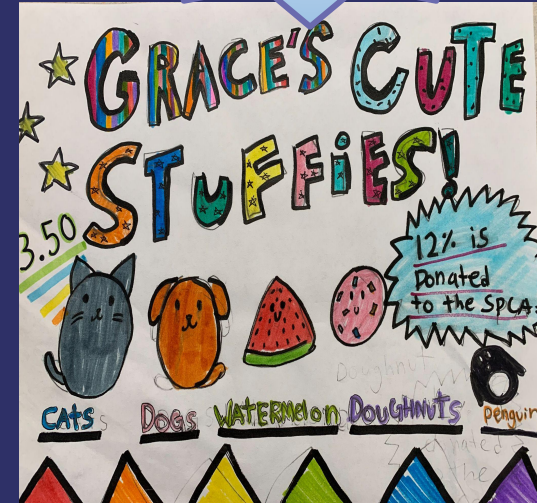 GRACE'S CUTE
STUFFiES!
3.50
12% is
Donated
to the SPCA.
CATS
DOGS
WATERMelon
DOUGHNUTS
Penguin
Doughnut